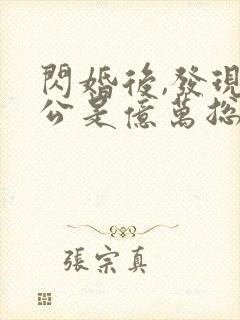 閃婚後,發現
公是億萬總
張宗真